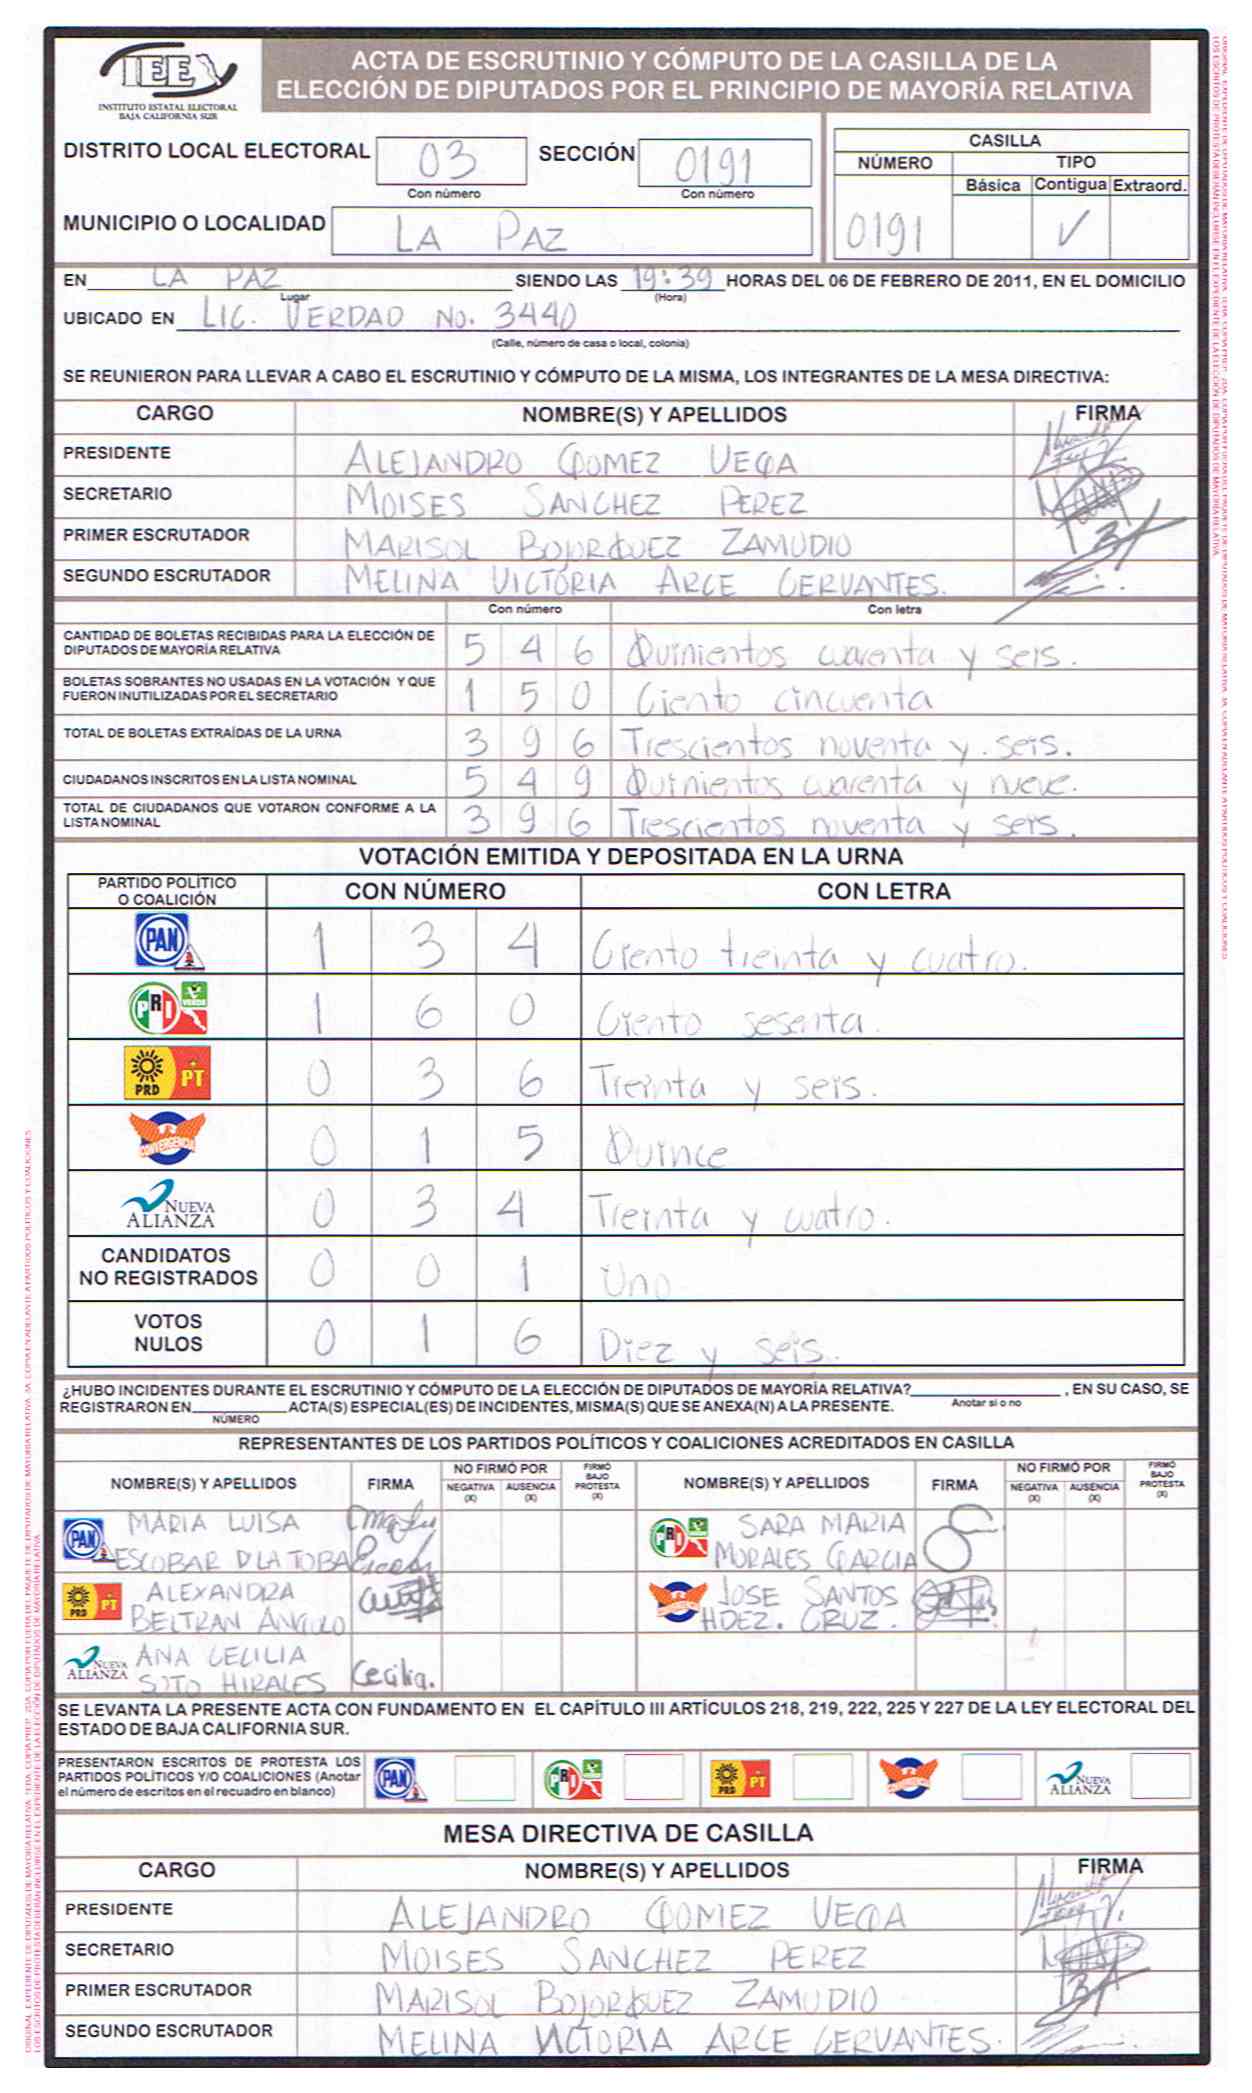 IEE
INSTITUTO ESTATAL ELECTORAL
BAJA CALIFORNIA SUR
ACTA DE ESCRUTINIO Y CÓMPUTO DE LA CASILLA DE LA
ELECCIÓN DE DIPUTADOS POR EL PRINCIPIO DE MAYORÍA RELATIVA
DISTRITO LOCAL ELECTORAL 03 SECCIÓN 0191
Con número Con número
MUNICIPIO O LOCALIDAD LA PAZ
CASILLA
NÚMERO TIPO
Básica Contigua Extraord.
0191 ✓
EN LA PAZ SIENDO LAS 19:39 HORAS DEL 06 DE FEBRERO DE 2011, EN EL DOMICILIO
Lugar (Hora)
UBICADO EN LIC. VERDAD NO. 3440
(Calle, número de casa o local, colonia)
SE REUNIERON PARA LLEVAR A CABO EL ESCRUTINIO Y CÓMPUTO DE LA MISMA, LOS INTEGRANTES DE LA MESA DIRECTIVA:
CARGO NOMBRE(S) Y APELLIDOS FIRMA
PRESIDENTE ALEJANDRO GOMEZ VEGA
SECRETARIO MOISES SANCHEZ PEREZ
PRIMER ESCRUTADOR MARISOL BOJORQUEZ ZAMUDIO
SEGUNDO ESCRUTADOR MELINA VICTORIA ARCE CERVANTES.
Con número Con letra
CANTIDAD DE BOLETAS RECIBIDAS PARA LA ELECCIÓN DE
DIPUTADOS DE MAYORÍA RELATIVA 5 4 6 Quinientos cuarenta y seis.
BOLETAS SOBRANTES NO USADAS EN LA VOTACIÓN Y QUE
FUERON INUTILIZADAS POR EL SECRETARIO 1 5 0 Ciento cincuenta
TOTAL DE BOLETAS EXTRAÍDAS DE LA URNA 3 9 6 Trescientos noventa y seis.
CIUDADANOS INSCRITOS EN LA LISTA NOMINAL 5 4 9 Quinientos cuarenta y nueve.
TOTAL DE CIUDADANOS QUE VOTARON CONFORME A LA
LISTA NOMINAL 3 9 6 Trescientos noventa y seis.
VOTACIÓN EMITIDA Y DEPOSITADA EN LA URNA
PARTIDO POLÍTICO
O COALICIÓN CON NÚMERO CON LETRA
PAN 1 3 4 Ciento treinta y cuatro.
PRI VERDE 1 6 0 Ciento sesenta.
PRD PT 0 3 6 Treinta y seis.
CONVERGENCIA 0 1 5 Quince
NUEVA
ALIANZA 0 3 4 Treinta y cuatro.
CANDIDATOS
NO REGISTRADOS 0 0 1 Uno
VOTOS
NULOS 0 1 6 Diez y seis.
¿HUBO INCIDENTES DURANTE EL ESCRUTINIO Y CÓMPUTO DE LA ELECCIÓN DE DIPUTADOS DE MAYORÍA RELATIVA? , EN SU CASO, SE
Anotar si o no
REGISTRARON EN ACTA(S) ESPECIAL(ES) DE INCIDENTES, MISMA(S) QUE SE ANEXA(N) A LA PRESENTE.
NÚMERO
REPRESENTANTES DE LOS PARTIDOS POLÍTICOS Y COALICIONES ACREDITADOS EN CASILLA
NOMBRE(S) Y APELLIDOS FIRMA NO FIRMÓ POR NEGATIVA (X) AUSENCIA (X) FIRMÓ BAJO PROTESTA (X) NOMBRE(S) Y APELLIDOS FIRMA NO FIRMÓ POR NEGATIVA (X) AUSENCIA (X) FIRMÓ BAJO PROTESTA (X)
PAN MARIA LUISA PRI SARA MARIA
ESCOBAR D LA TOBA MORALES GARCIA
PRD PT ALEXANDRA JOSE SANTOS
BELTRAN ANGULO HDEZ. CRUZ.
NUEVA ALIANZA ANA CECILIA
SOTO HIRALES Cecilia.
SE LEVANTA LA PRESENTE ACTA CON FUNDAMENTO EN EL CAPÍTULO III ARTÍCULOS 218, 219, 222, 225 Y 227 DE LA LEY ELECTORAL DEL
ESTADO DE BAJA CALIFORNIA SUR.
PRESENTARON ESCRITOS DE PROTESTA LOS
PARTIDOS POLÍTICOS Y/O COALICIONES (Anotar
el número de escritos en el recuadro en blanco)
PAN PRI PRD PT NUEVA ALIANZA
MESA DIRECTIVA DE CASILLA
CARGO NOMBRE(S) Y APELLIDOS FIRMA
PRESIDENTE ALEJANDRO GOMEZ VEGA
SECRETARIO MOISES SANCHEZ PEREZ
PRIMER ESCRUTADOR MARISOL BOJORQUEZ ZAMUDIO
SEGUNDO ESCRUTADOR MELINA VICTORIA ARCE CERVANTES.